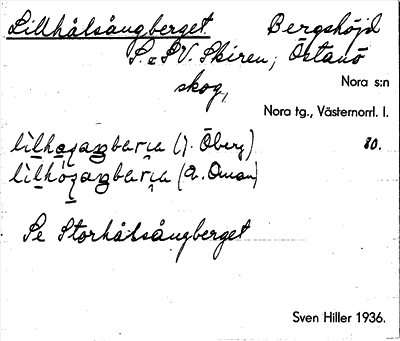 Lillhålsångberget Bergshöjd
S. o SV. Skiren, Östanö
skog,
Nora s:n
Nora tg., Västernorrl. l.
(J. Öberg) 80.
Se Storhålsångberget
Sven Hiller 1936.